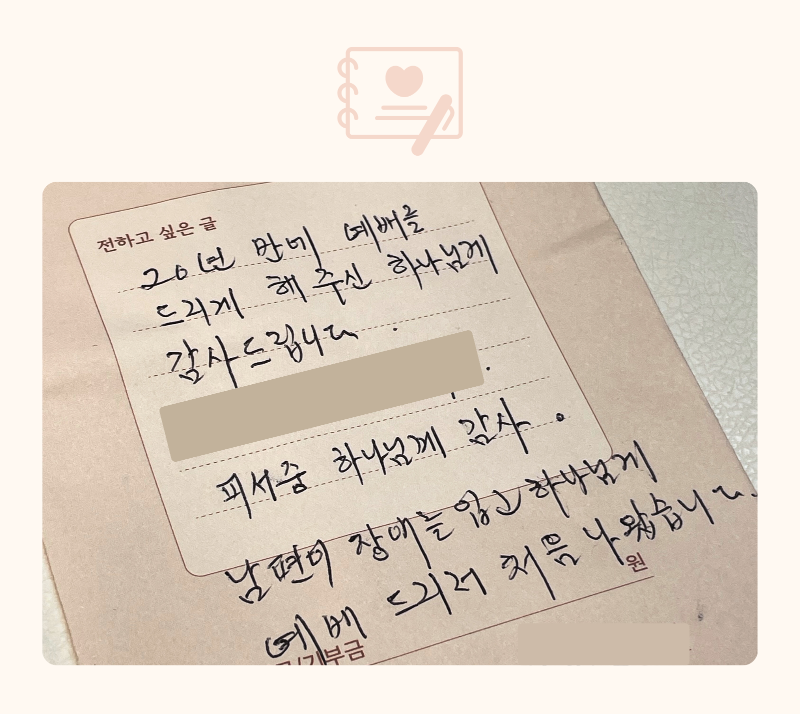 전하고 싶은 글
20년 만에 예배를
드리게 해주신 하나님게
감사드립니다.
피서중 하나님께 감사.
남편이 장애를 입고 하나님게
예배 드리러 처음 나왔습니다.
원
기부금